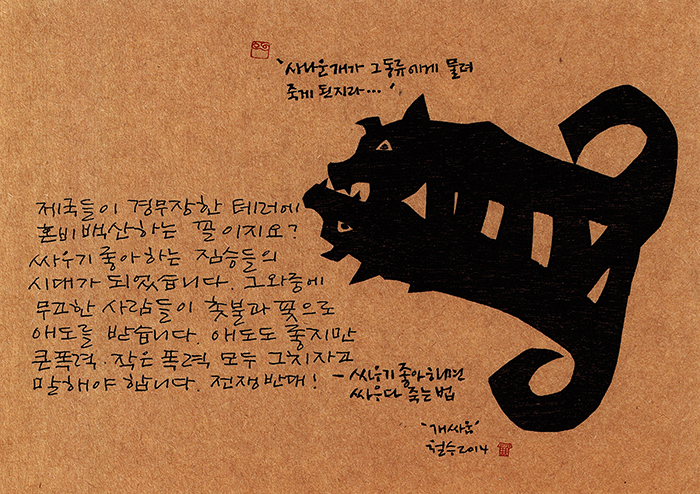 "사나운 개가 그 동류에게 물려
죽게 된지라…"
제국들이 경무장한 테러에
혼비백산하는 꼴이지요?
싸우기 좋아하는 짐승들의
시대가 되었습니다. 그 와중에
무고한 사람들이 촛불과 꽃으로
애도를 받습니다. 애도도 좋지만
큰 폭력·작은 폭력 모두 그치자고
말해야 합니다. 전쟁반대!
- 싸우기 좋아하면
싸우다 죽는 법
"개싸움"
철수 2014